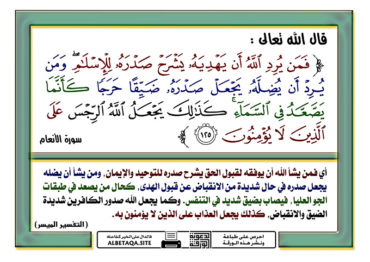 قال الله تعالى :
﴿ فَمَن يُرِدِ ٱللَّهُ أَن يَهْدِيَهُۥ يَشْرَحْ صَدْرَهُۥ لِلْإِسْلَـٰمِ ۖ وَمَن
يُرِدْ أَن يُضِلَّهُۥ يَجْعَلْ صَدْرَهُۥ ضَيِّقًا حَرَجًا كَأَنَّمَا
يَصَّعَّدُ فِى ٱلسَّمَآءِ ۚ كَذَٰلِكَ يَجْعَلُ ٱللَّهُ ٱلرِّجْسَ عَلَى
ٱلَّذِينَ لَا يُؤْمِنُونَ ﴿١٢٥﴾ ﴾
سورة الأنعام
أي فمن يشأ الله أن يوفقه لقبول الحق يشرح صدره للتوحيد والإيمان, ومن يشأ أن يضله
يجعل صدره في حال شديدة من الانقباض عن قبول الهدى, كحال من يصعد في طبقات
الجو العليا, فيصاب بضيق شديد في التنفس. وكما يجعل الله صدور الكافرين شديدة
الضيق والانقباض, كذلك يجعل العذاب على الذين لا يؤمنون به.
( التفسير الميسر )
ALBETAQA.SITE
احرص على طباعة
ونشر هذه الورقة